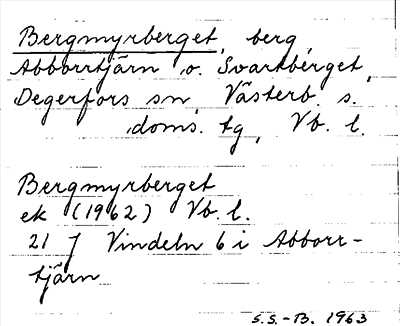 Bergmyrberget, berg,
Abborrtjärn o. Svartberget,
Degerfors sn, Västerb. s.
doms. tg, Vb. l.
Bergmyrberget
ek (1962) Vb. l.
21 J Vindeln 6 i Abborr-
tjärn
S.S.-B. 1963